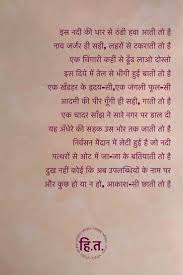 इस नदी की धार से ठंडी हवा आती तो है
नाव जर्जर ही सही, लहरों से टकराती तो है
एक चिंगारी कहीं से ढूँढ लाओ दोस्तो
इस दिये में तेल से भीगी हुई बाती तो है
एक खँडहर के हृदय-सी,एक जंगली फूल-सी
आदमी की पीर गूँगी ही सही, गाती तो है
एक चादर साँझ ने सारे नगर पर डाल दी
यह अँधेरे की सड़क उस भोर तक जाती तो है
निर्वसन मैदान में लेटी हुई है जो नदी
पत्थरों से ओट में जा-जा के बतियाती तो है
दुख नहीं कोई कि अब उपलब्धियों के नाम पर
और कुछ हो या न हो, आकाश-सी छाती तो है
हि.त.